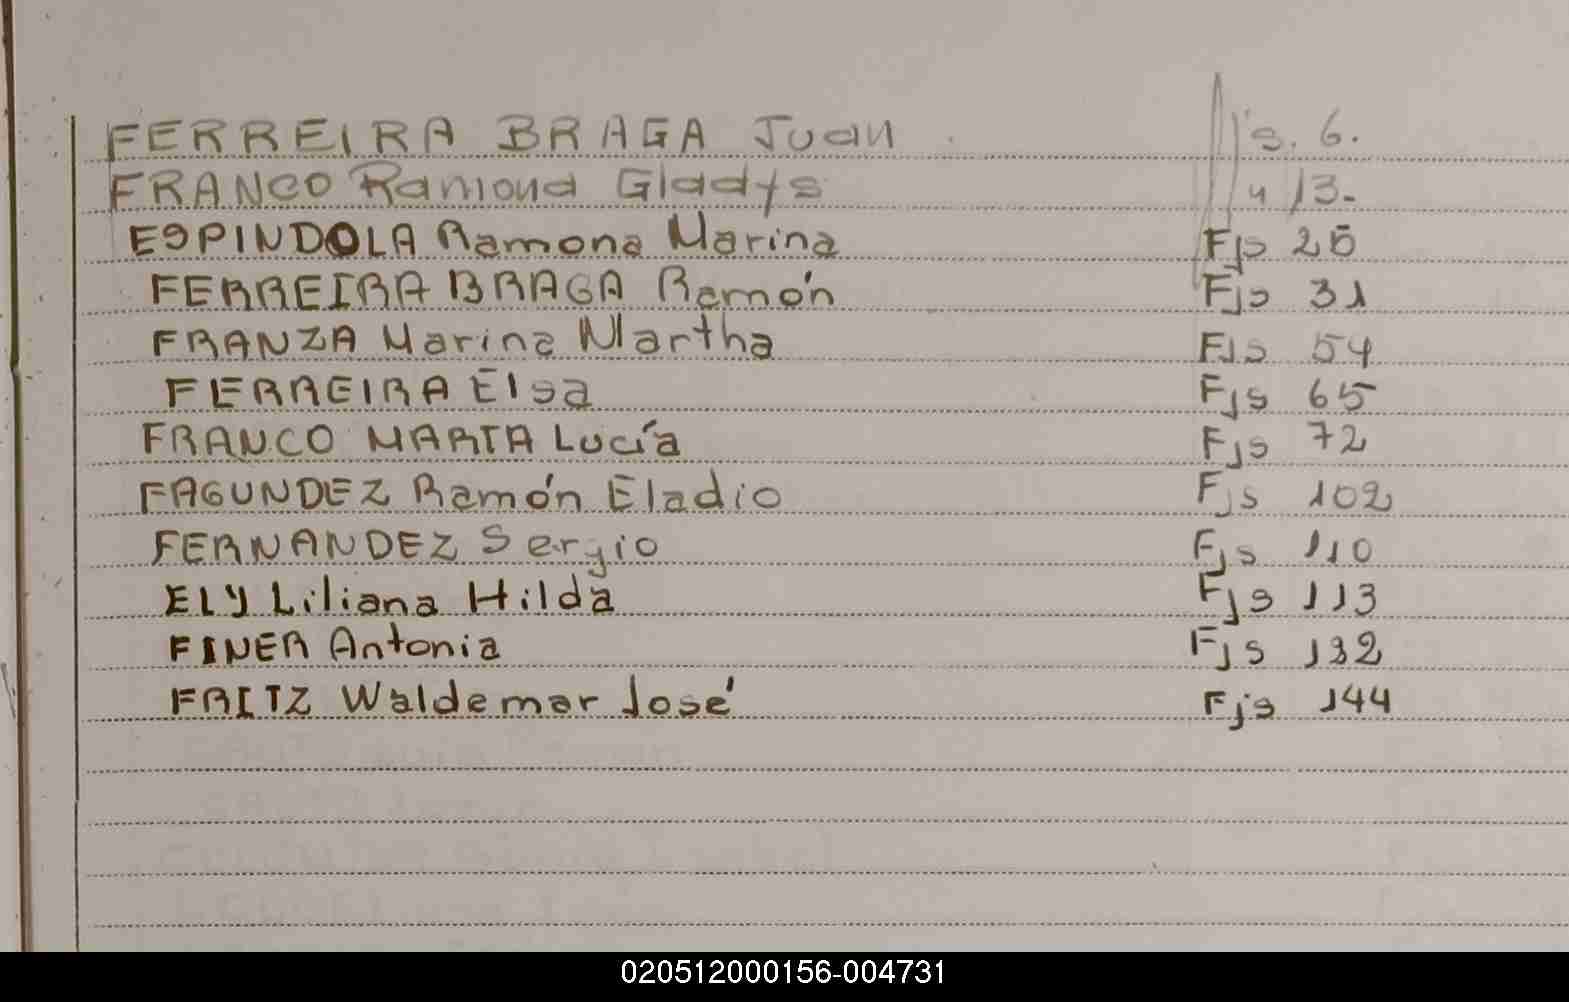 FERREIRA BRAGA Juan Fjs. 6.
FRANCO Ramona Gladys " 13.
ESPINDOLA Ramona Marina Fjs 25
FERREIRA BRAGA Ramón Fjs 31
FRANZA Marina Martha Fjs 54
FERREIRA Elsa Fjs 65
FRANCO MARTA Lucía Fjs 72
FAGUNDEZ Ramón Eladio Fjs 102
FERNANDEZ Sergio Fjs 110
ELY Liliana Hilda Fjs 113
FINER Antonia Fjs 132
FRITZ Waldemar José Fjs 144
020512000156-004731